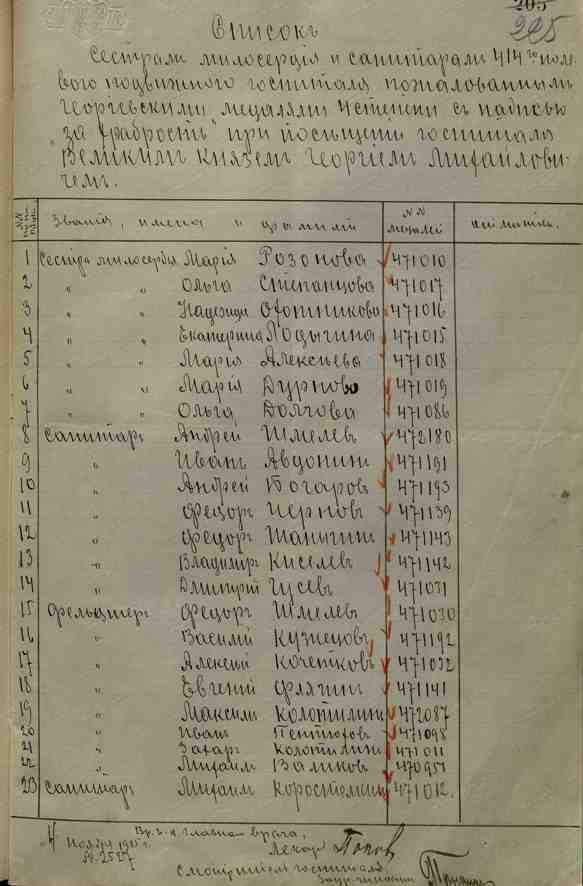 205
225
Списокъ
Сестрамъ милосердія и санитарамъ 414го поле-
вого подвижного госпиталя, пожалованнымъ
Георгіевскими медалями 4 степени съ надписью
"за храбрость" при посѣщеніи госпиталя
Великимъ Княземъ Георгіемъ Михайлови-
чемъ.
Званія, имена и фамиліи NN медалей
1 Сестра милосердія Марія Розонова 471010
2 " " Ольга Степанцова 471017
3 " " Надежда Охотникова 471016
4 " " Екатерина Лодыгина 471015
5 " " Марія Алексѣева 471018
6 " " Марія Дурново 471019
7 " " Ольга Долгова 471086
8 Санитаръ Андрей Шмелевъ 472180
9 " Иванъ Авдонинъ 471191
10 " Андрей Богаровъ 471193
11 " Федоръ Черновъ 471139
12 " Федоръ Шаныгинъ 471143
13 " Владиміръ Киселевъ 471142
14 " Дмитрій Гусевъ 471031
15 Фельдшеръ Федоръ Шмелевъ 471030
16 " Василій Кузнецовъ 471192
17 " Алексѣй Кочетковъ 471032
18 " Евгеній Флягинъ 471141
19 " Максимъ Колотилинъ 472087
20 " Иванъ Пентюховъ 471098
21 " Захаръ Колотилинъ 471011
22 " Михаилъ Валиковъ 470951
23 Санитаръ Михаилъ Коростелинъ 471012.
Вр. и. д. Главнаго врача,
Лекарь Поповъ
4 Ноября 1915 г.
№ 2527
Смотритель госпиталя,